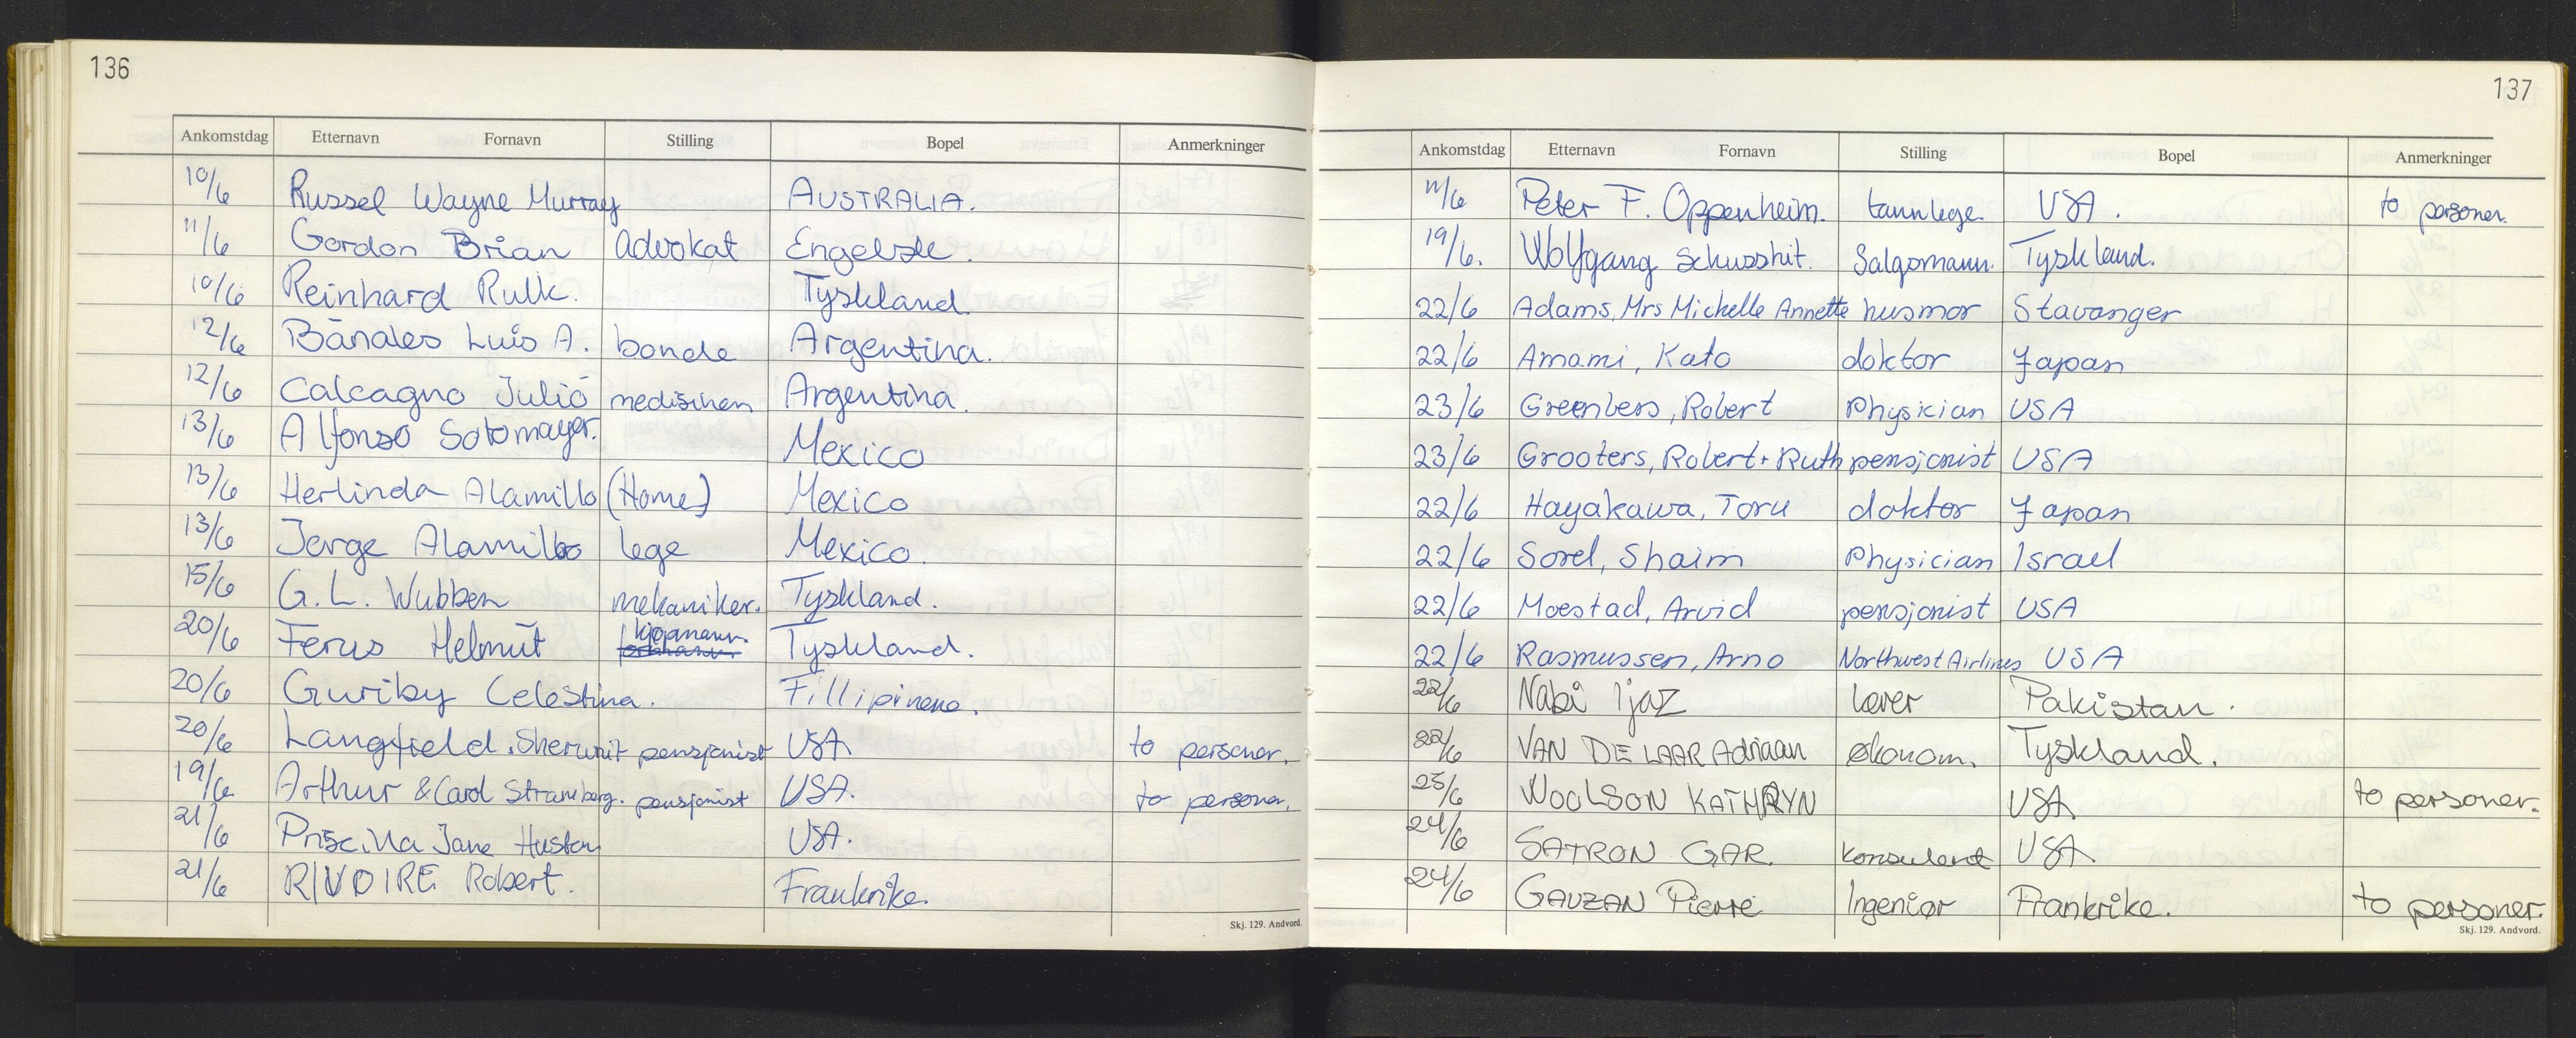 136
Ankomstdag Etternavn Fornavn Stilling Bopel Anmerkninger
10/6 Russel Wayne Murray AUSTRALIA.
11/6 Gordon Brian Advokat
10/6 Reinhard Rulk. Tyskland
12/6 Bãnales Luis A. bonde Argentina.
12/6 Calcagno Julio medisinen Argentina.
13/6 Alfonso Sotomayor. Mexico
13/6 Herlinda Alamillo (Home) Mexico
13/6 Jorge Alamillo lege Mexico.
15/6 G.L. Wubben mekaniker. Tyskland.
20/6 Ferus Helmut kjøpmann Tyskland.
20/6 Guriby Celestina. Fillipinene.
20/6 Langfield. pensjonist USA to personer.
19/6 Arthur & Carol Stramberg. pensjonist USA. to personer.
21/6 Priscilla Jane Huston USA.
21/6 RIVOIRE Robert. Frankrike.
Skj. 129. Andvord.
137
Ankomstdag Etternavn Fornavn Stilling Bopel Anmerkninger
11/6 Peter F. Oppenheim. tannlege USA. to personer.
19/6. Wolfgang Schusshit. Salgsmann. Tyskland.
22/6 Adams, Mrs Michelle Annette husmor Stavanger
22/6 Amami, Kato doktor Japan
23/6 Greenbers, Robert Physician USA
23/6 Grooters, Robert + Ruth pensjonist USA
22/6 Hayakawa, Toru doktor Japan
22/6 Sorel, Shaim Physician Israel
22/6 Moestad, Arvid pensjonist USA
22/6 Rasmussen, Arno Northwest Airlines USA
22/6 Nabi Ijaz Pakistan.
22/6 VAN DE LAAR Adriaan økonom. Tyskland.
25/6 WOOLSON KATHRYN USA to personer.
24/6 SATRON GAR. konsulent USA
24/6 GAUZAN Pierre Ingeniør Frankrike. to personer.
Skj. 129. Andvord.